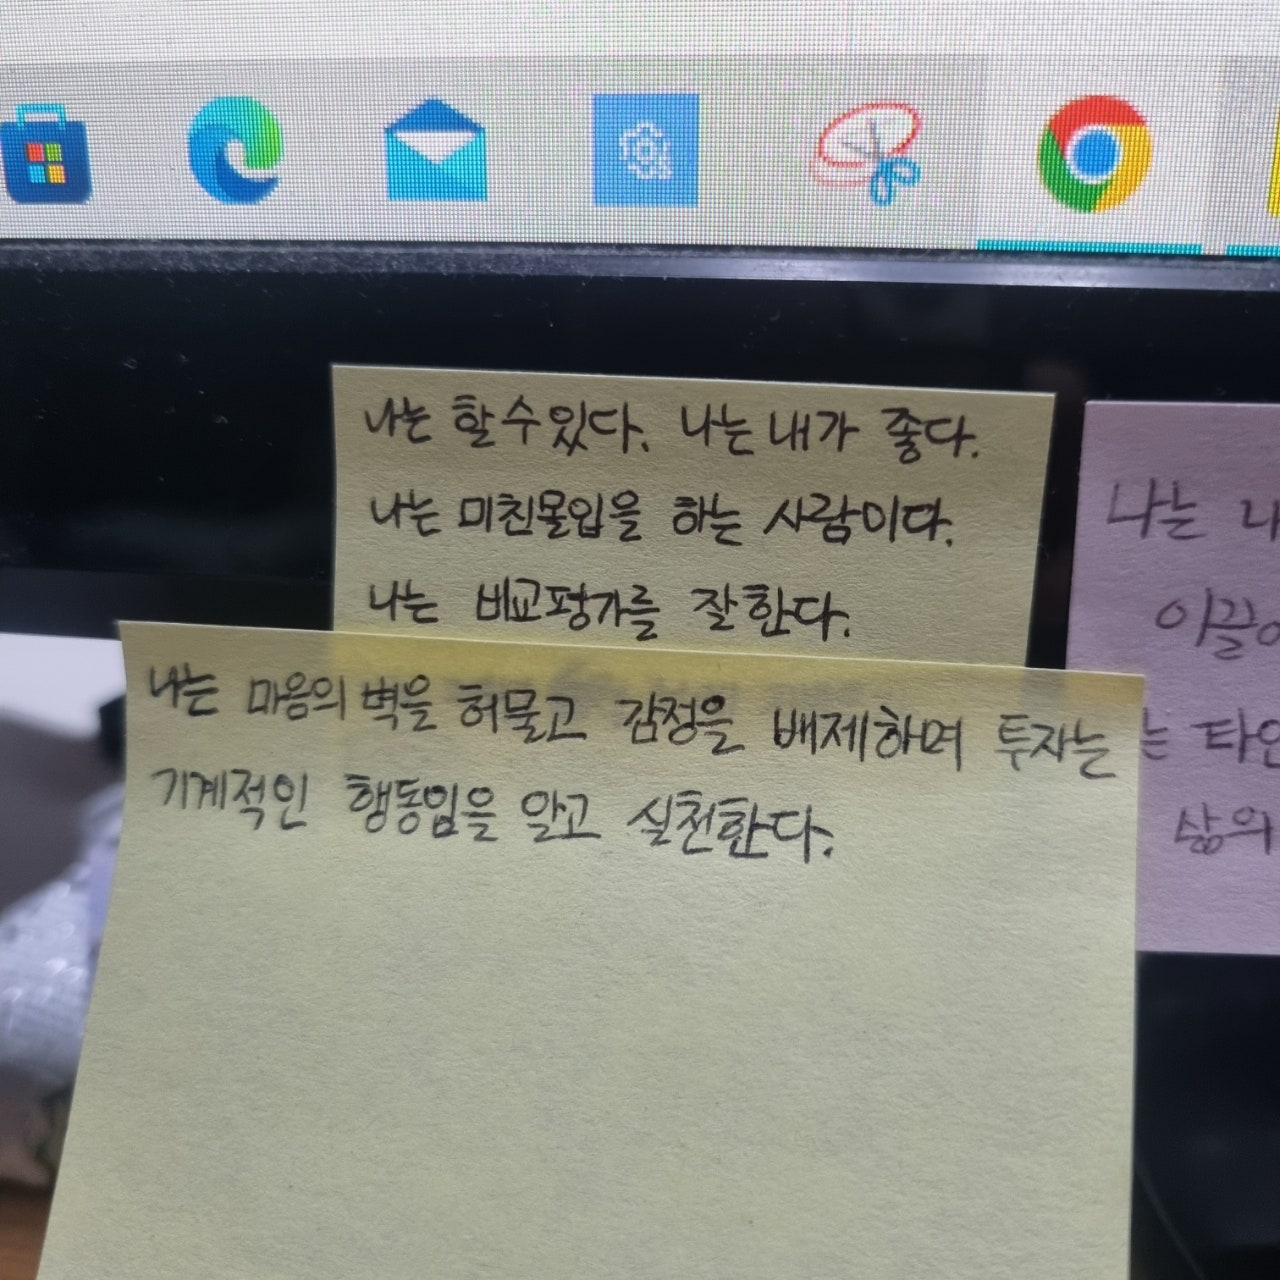 나는 할수있다. 나는 내가 좋다.
나는 미친몰입을 하는 사람이다.
나는 비교평가를 잘한다.
나는 마음의 벽을 허물고 감정을 배제하며 투자는
기계적인 행동임을 알고 실천한다.
나는
는
삶의